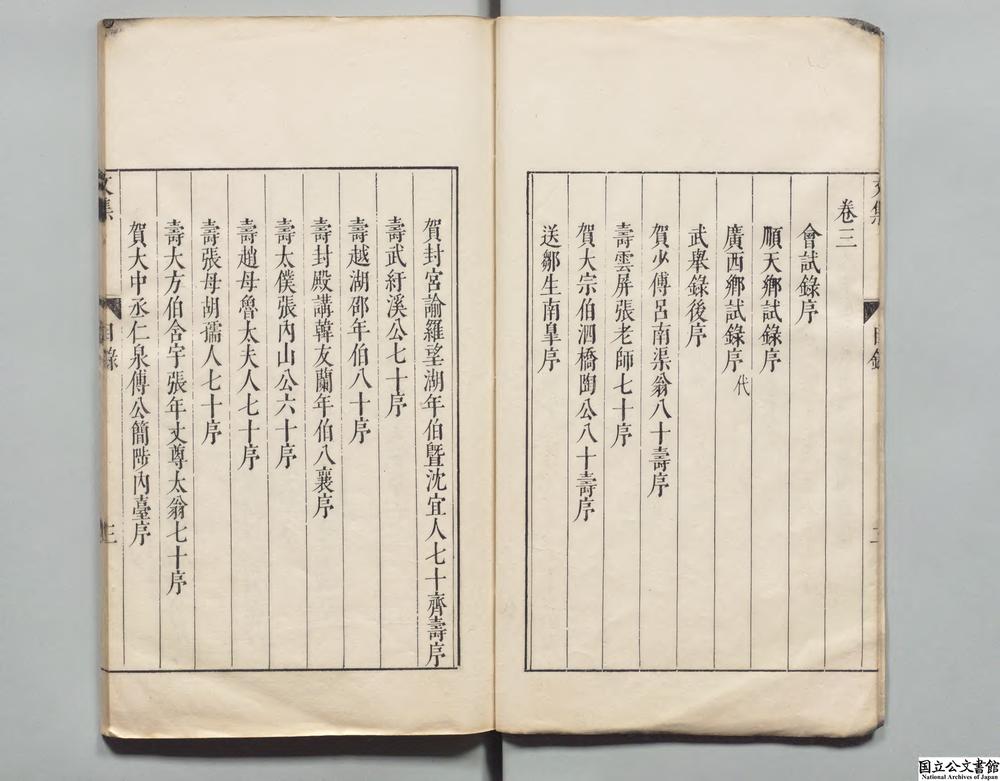 卷三
會試錄序
順天鄉試錄序
廣西鄉試錄序代
武舉錄後序
賀少傅呂南渠翁八十壽序
壽雲屏張老師七十序
賀大宗伯泗橋陶公八十壽序
送鄒生南皐序
賀封宮諭羅望湖年伯曁沈宜人七十齊壽序
壽武紆溪公七十序
壽越湖邵年伯八十序
壽封殿講韓友蘭年伯八襄序
壽太僕張內山公六十序
壽趙母魯太夫人七十序
壽張母胡孺人七十序
壽大方伯含宇張年丈尊太翁七十序
賀大中丞仁泉傅公簡陟內臺序
文集
目錄
三
国立公文書館
National Archives of Japan